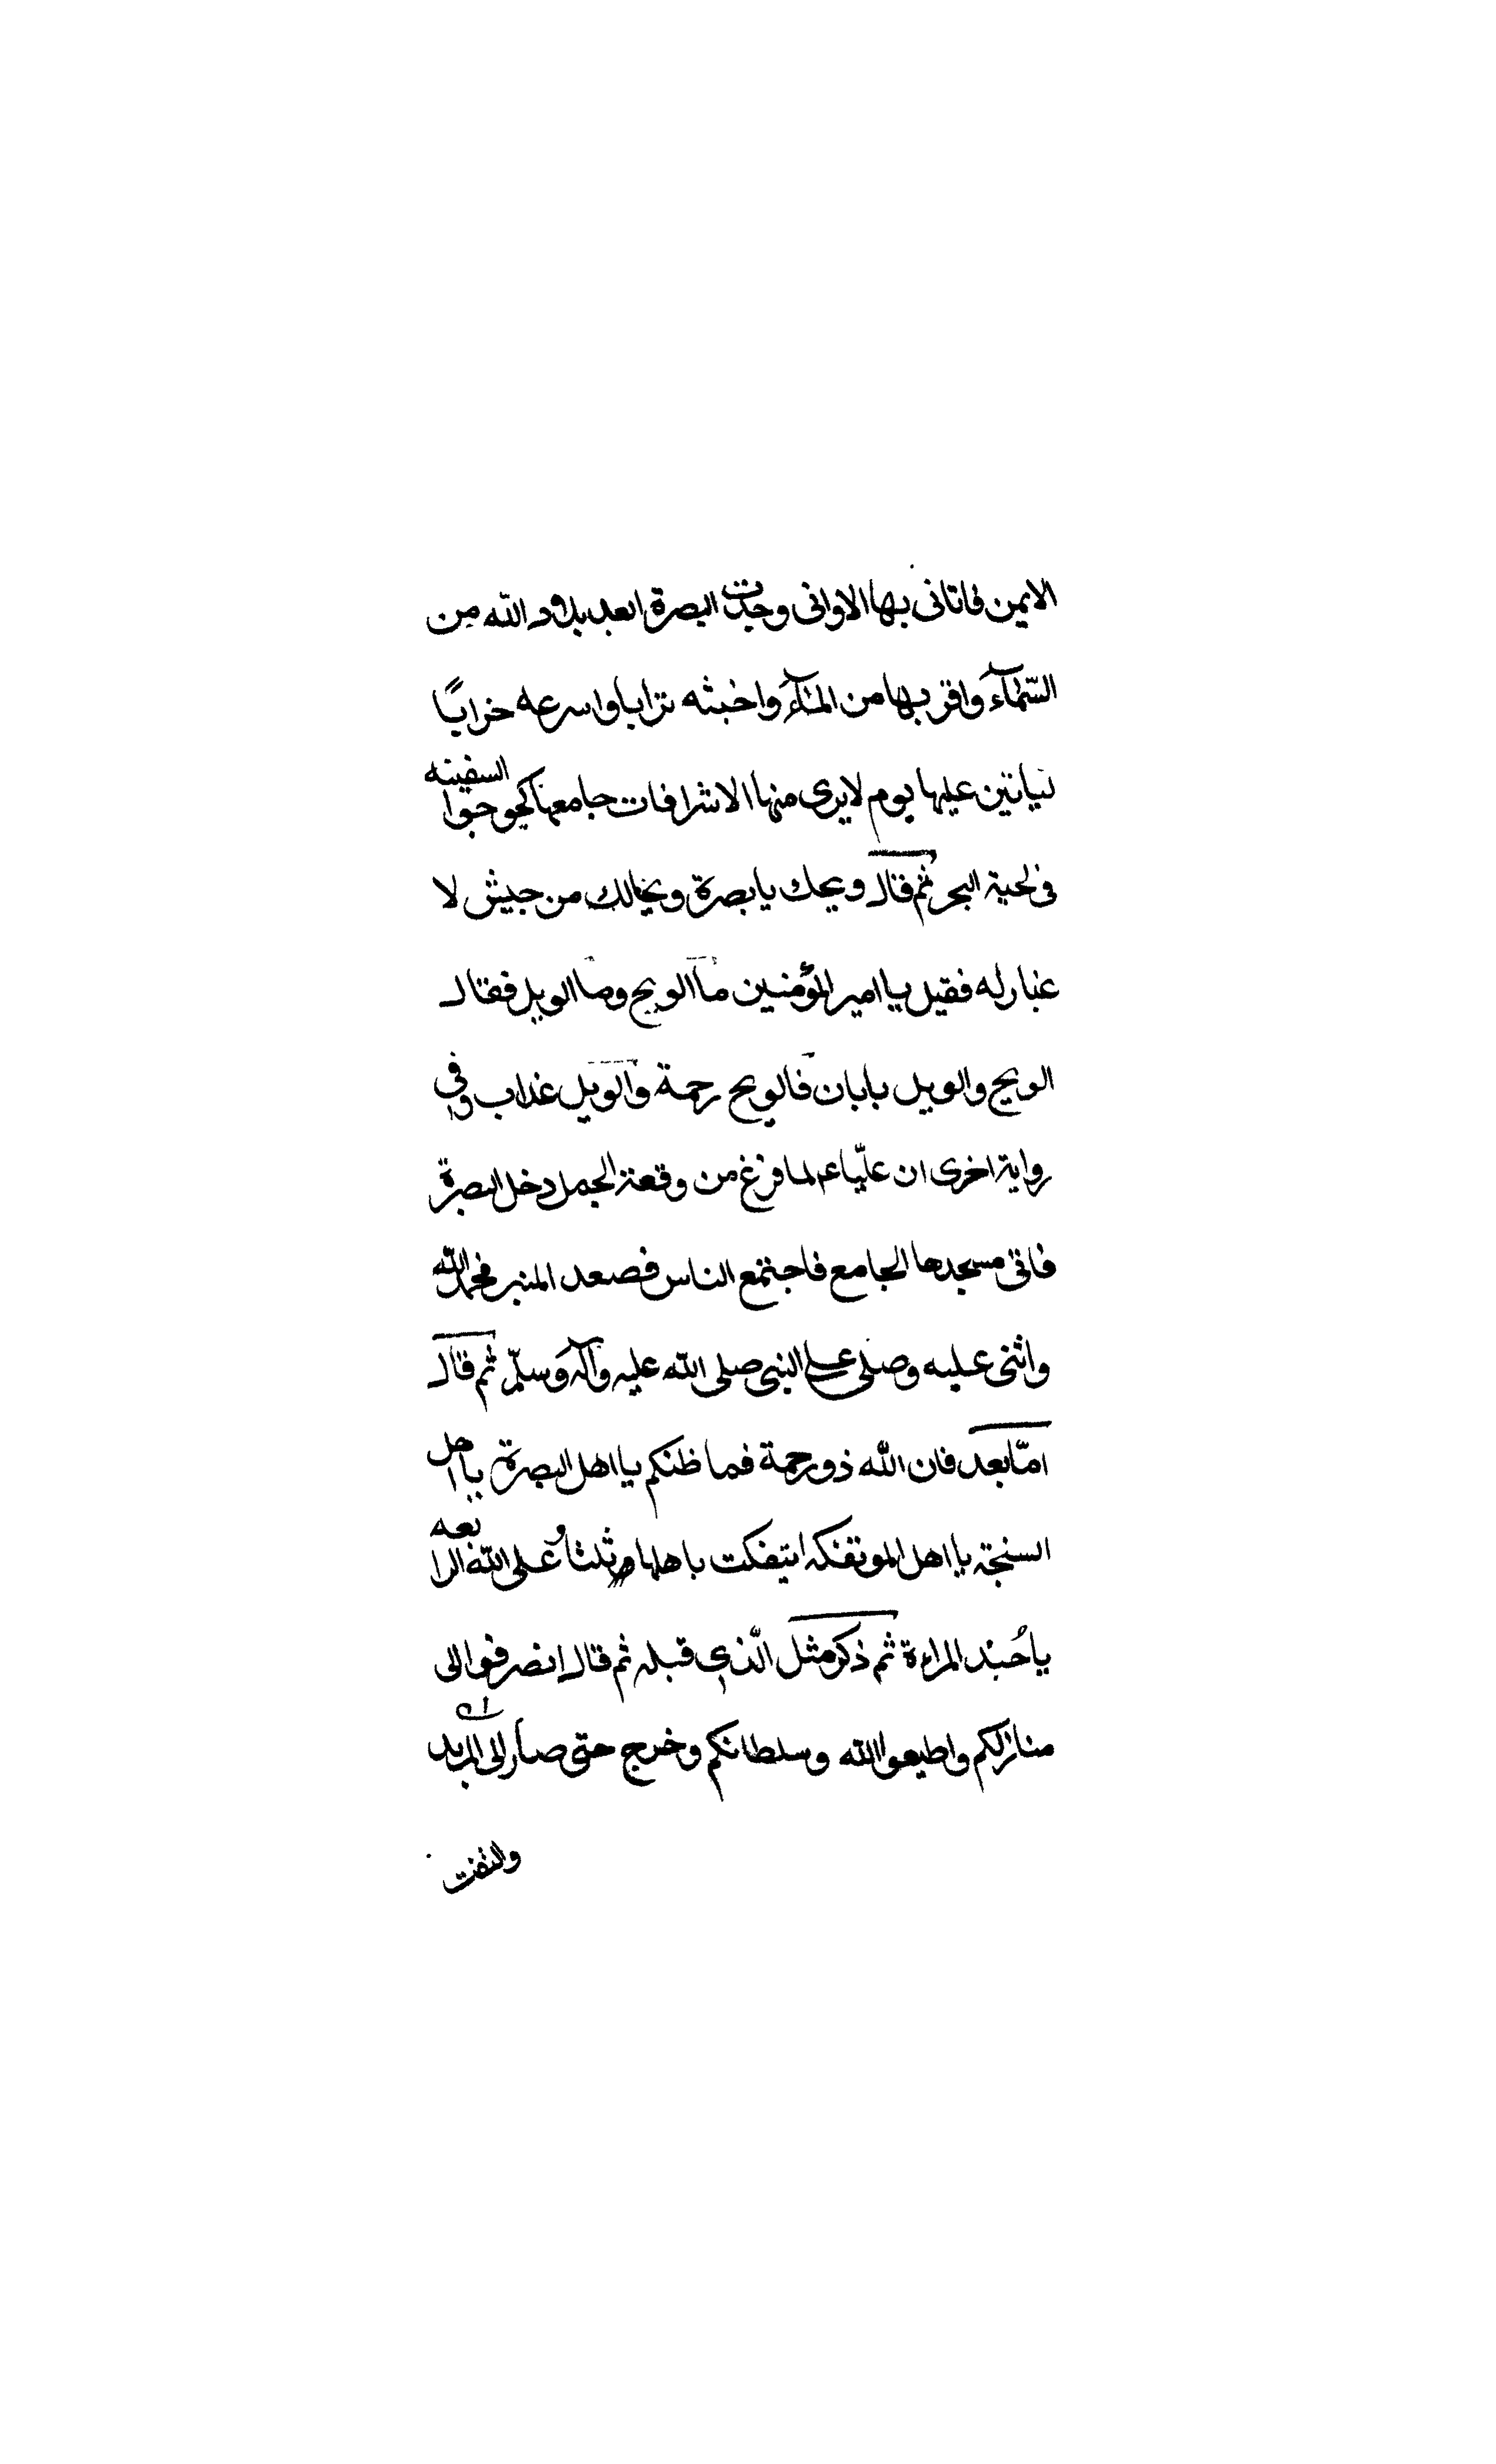 الايمن فاتانى بها الاوانى وجدت البصرة ابعد بلاد الله من
السّمآء واقربها من المآء واخبثه ترابا واسرعه خرابًا
لياتين عليها يوم لا يرى منها الا شرافات جامعها كجوجوا السفينه
فى لجية البحر ثم قال ويحك يا بصرة ويحالك من جيش لا
غبار له فقيل يا امير المؤمنين ما الويح وما الويل فقال
الويح والويل بابان فالويح رحمة والويل عذاب وفى
رواية اخرى ان عليّا عم لما فرغ من وقعة الجمل دخل البصرة
فاتى مسجدها الجامع فاجتمع الناس فصعد المنبر فحمد الله
واثنى عليه وصلى على النبى صلى الله عليه وآله وسلّم ثم قال
امّا بعد فان الله ذو رحمة فما ظنكم يا اهل البصرة يا اهل
السبخة يا اهل الموتفكه ايتفكت باهلها ثلثا وعلى الله الرابعه
يا جُند المراءة ثم ذكر مثل الّذى قبله ثم قال انصرفوا الى
منازلكم واطيعوا الله وسلطانكم وخرج حتى صار الى المربد
والتفت